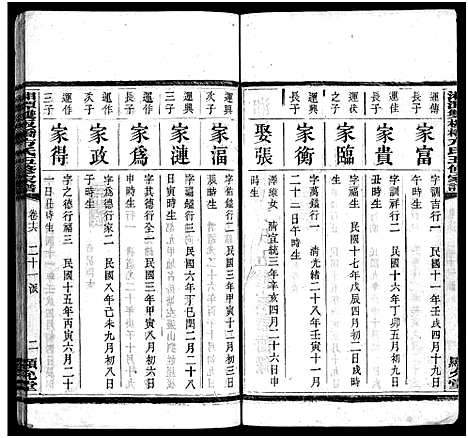 湘潭雙板橋方氏五修家譜
運傳
長子
家富
字訓吉行一 民國十一年壬戌四月十六日
亥時生
次子
家貴
民國十六年丁卯五月初九日
運作
之子
家臨
民國十七年戊辰四月初二日戌時
生
運興
長子
家衡
字萬鎰行一 清光緒二十八年壬寅十一月
二十二日午時生
娶張
淨徽女 清宣統三年辛亥四月二十六日申
時生
運興
次子
家湢
字佐鎰行二 民國三年甲寅十二月十三日
辰時生
三子
家漣
行三 民國六年丁巳閏二月二十八
酉時生
運作
長子
家為
字其德行一 民國三年甲寅八月初三日
次子
家政
字為德行二 民國八年己未九月初八日
子時生
三子
家得
字之德行三 民國十五年丙寅六月二十
一日丑時生
湘潭雙板橋方氏五修家譜
卷十六 二十一派
二
顯允堂